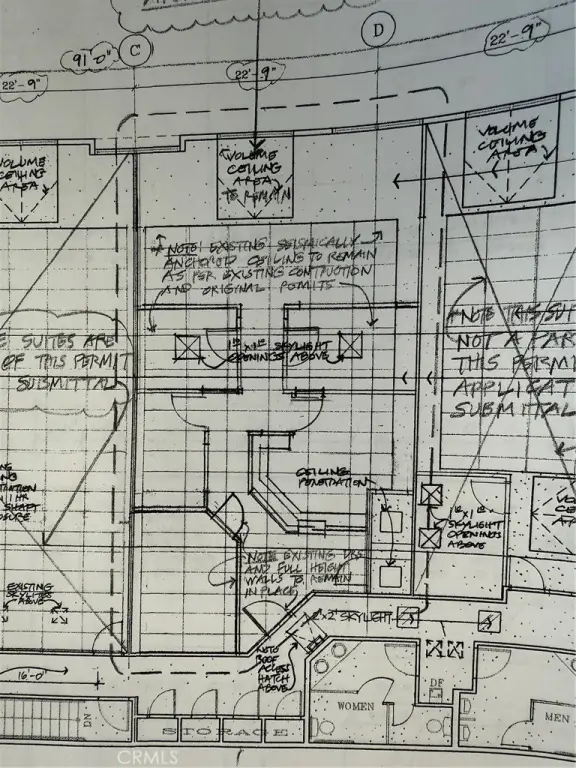 C
D
91'-0"
22'-9"
22'-9"
22'-9"
VOLUME
CEILING
AREA
VOLUME
CEILING
AREA
TO REMAIN
VOLUME
CEILING
AREA
NOTE: EXISTING SEISMICALLY
ANCHORED CEILING TO REMAIN
AS PER EXISTING CONTRUCTION
AND ORIGINAL PERMITS
SUITES ARE
OF THIS PERMIT
SUBMITTAL
SKYLIGHT
OPENINGS ABOVE
NOTE THIS SUI
NOT A PAR
THIS PERMI
APPLICAT
SUBMITTAL
CEILING
PENETRATION
1 HR
SHAFT
SKYLIGHT
OPENINGS
ABOVE
NOTE EXISTING DRS
AND FULL HEIGHT
WALLS TO REMAIN
IN PLACE
EXISTING
SKYLITES
ABOVE
2'x2' SKYLIGHT
NOTE
ROOF
ACCESS
HATCH
ABOVE
16'-0"
DN
STORAGE
WOMEN
DF
MEN
CRMLS